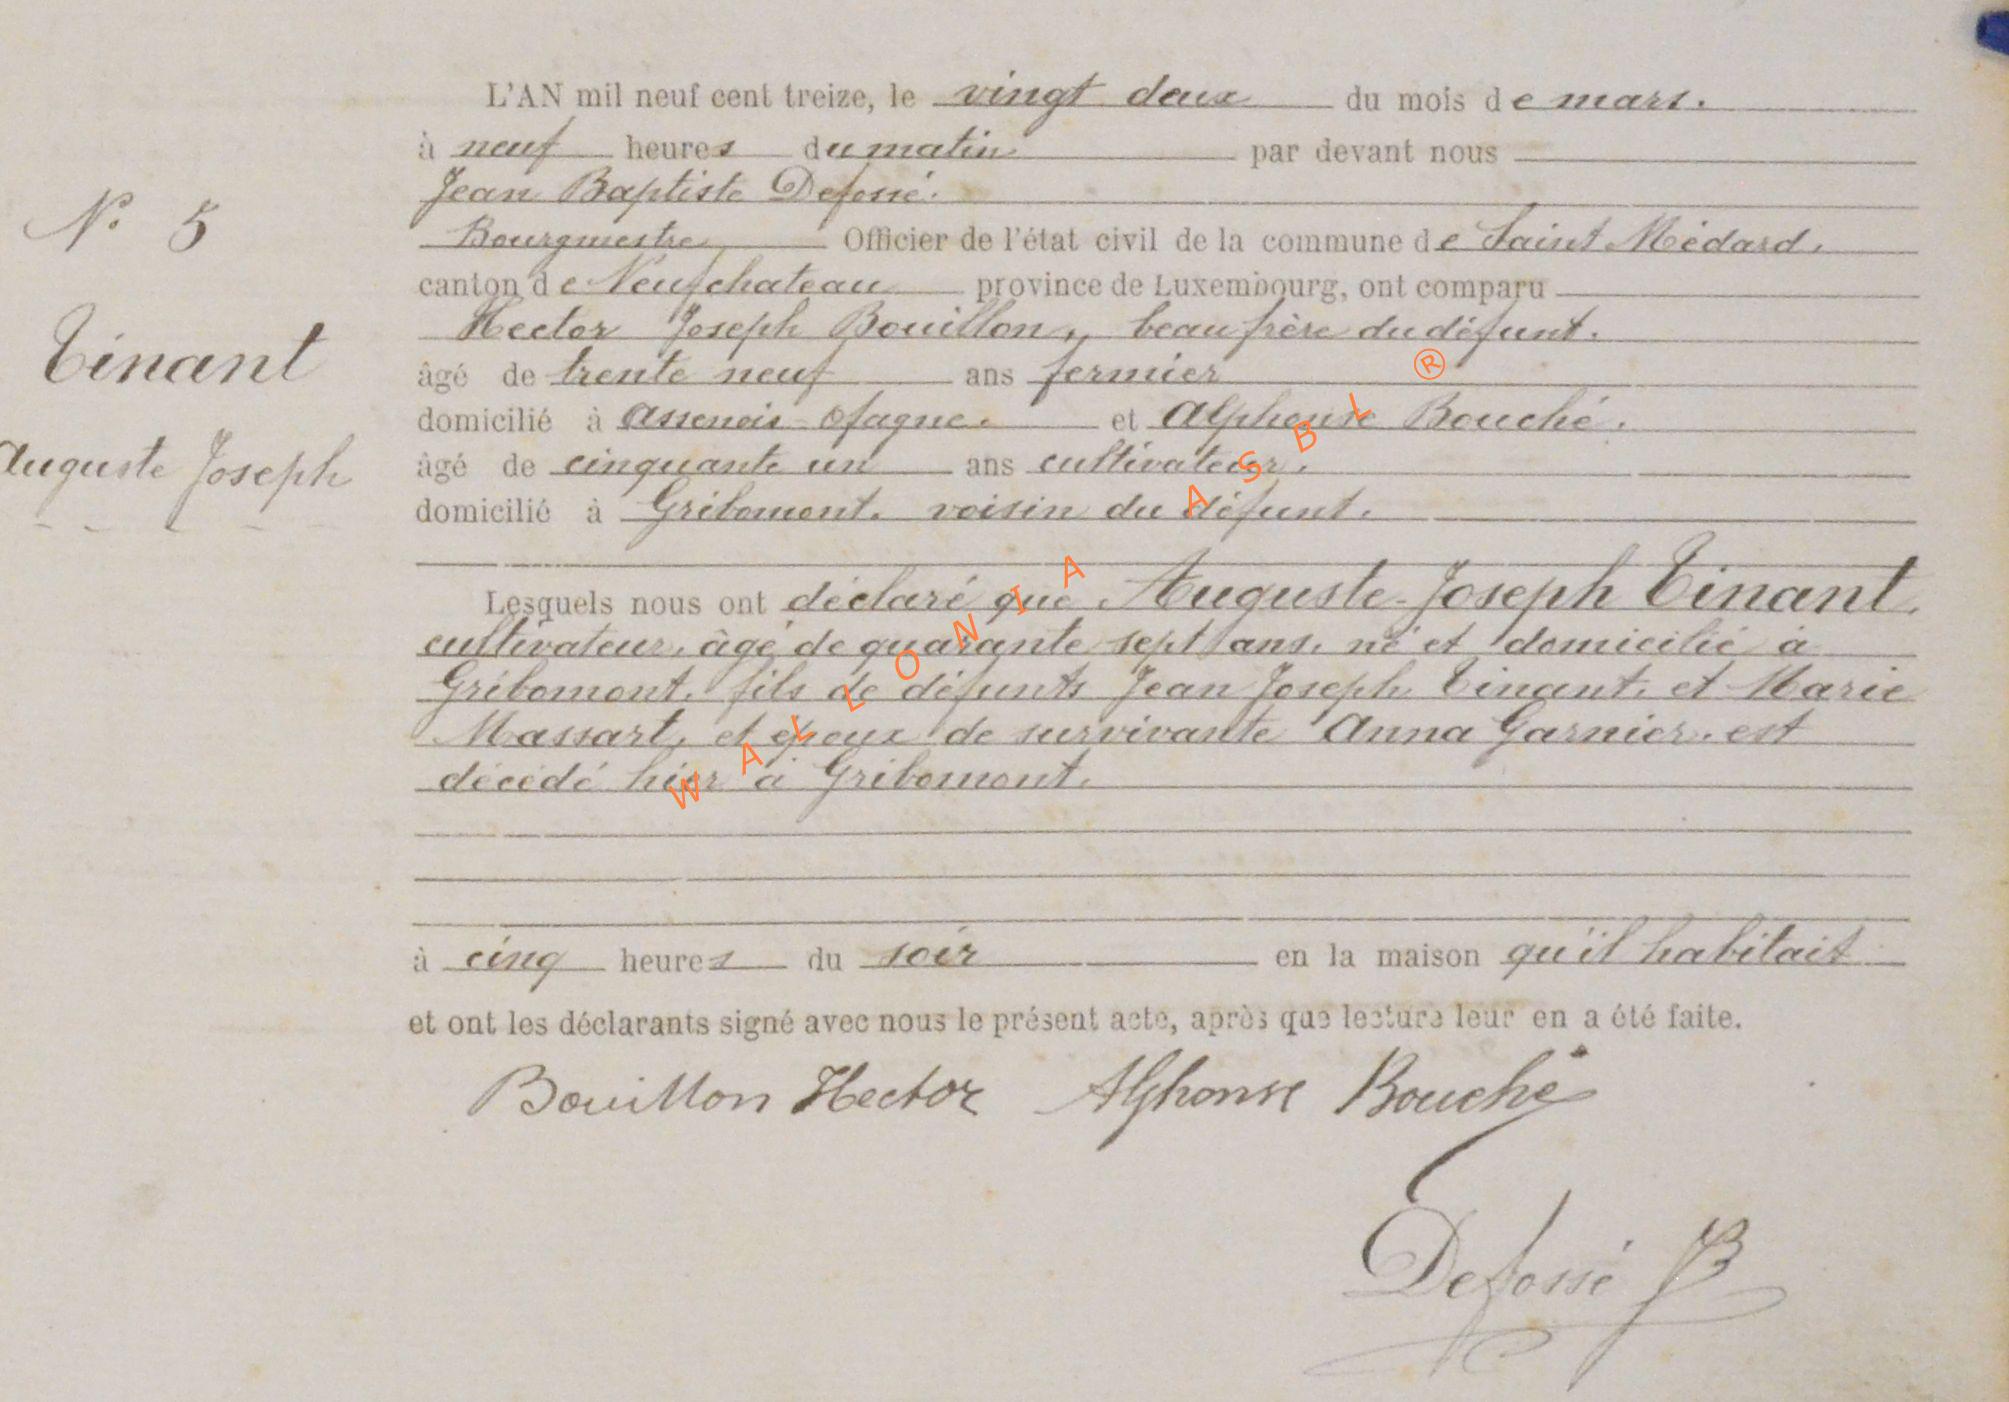 L'AN mil neuf cent treize, le vingt deux du mois de mars.
à neuf heures du matin par devant nous
Jean Baptiste Defossé.
Bourgmestre Officier de l'état civil de la commune de Saint Médard.
canton de Neufchateau province de Luxembourg, ont comparu
Hector Joseph Bouillon, beau frère du défunt.
âgé de trente neuf ans fermier
domicilié à assenois-ofagne. et Alphonse Bouché.
âgé de cinquante un ans cultivateur.
domicilié à Gribomont. voisin du défunt.
Lesquels nous ont déclaré que Auguste-Joseph Tinant.
cultivateur, âgé de quarante sept ans, né et domicilié à
Gribomont, fils de défunts Jean Joseph Tinant, et Marie
Massart, et époux de survivante Anna Garnier. est
décédé hier à Gribomont.
à cinq heures du soir en la maison qu'il habitait
et ont les déclarants signé avec nous le présent acte, après que lecture leur en a été faite.
Bouillon Hector Alphonse Bouché
Defossé JB
N° 5
Tinant
Auguste Joseph
WALLONIA ASBL ®